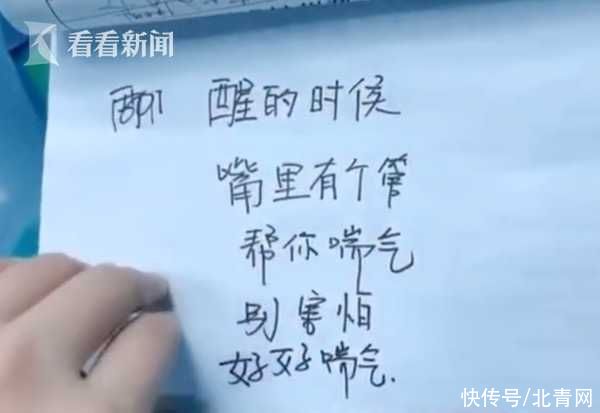 看看新闻
醒的时候
嘴里有个管
帮你喘气
别害怕
好好喘气.
快传号/北青网